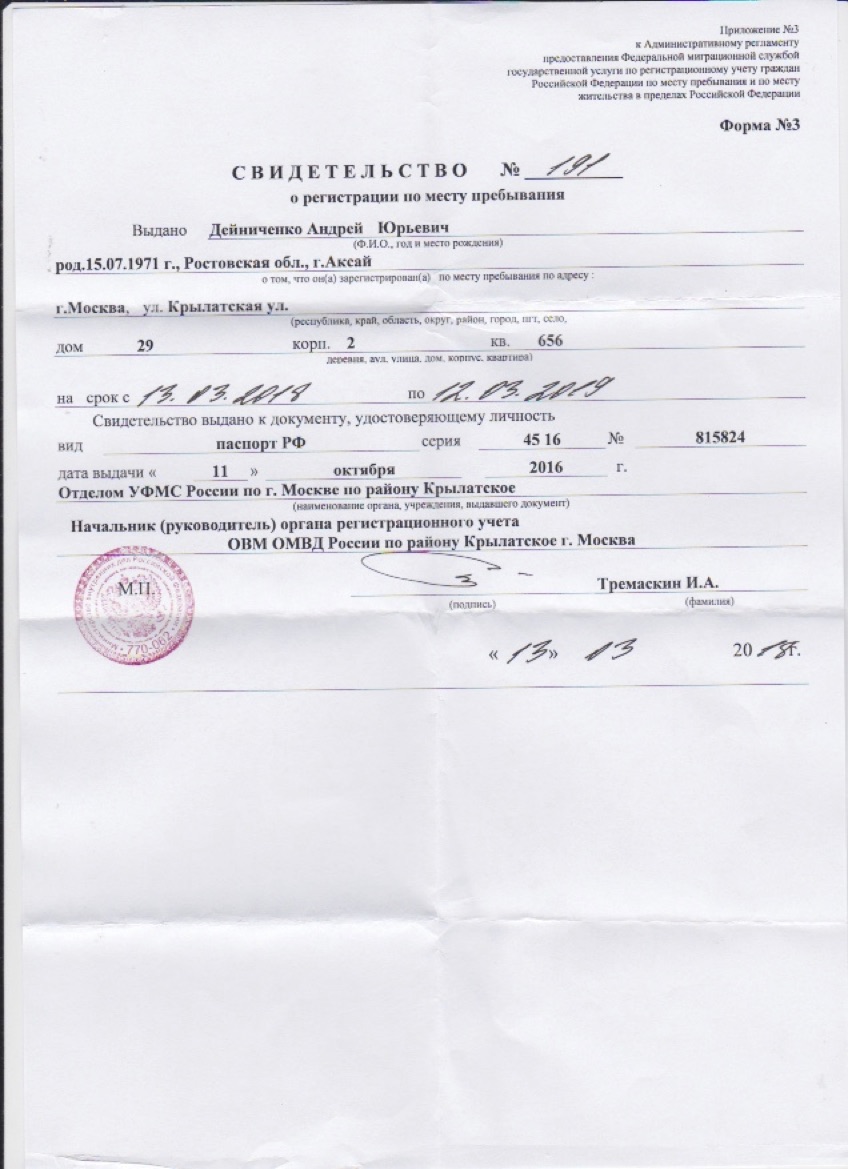 Приложение №3
к Административному регламенту
предоставления Федеральной миграционной службой
государственной услуги по регистрационному учету граждан
Российской Федерации по месту пребывания и по месту
жительства в пределах Российской Федерации
Форма №3
СВИДЕТЕЛЬСТВО № 191
о регистрации по месту пребывания
Выдано Дейниченко Андрей Юрьевич
(Ф.И.О., год и место рождения)
род.15.07.1971 г., Ростовская обл., г.Аксай
о том, что он(а) зарегистрирован(а) по месту пребывания по адресу :
г.Москва, ул. Крылатская ул.
(республика, край, область, округ, район, город, пгт, село,
дом 29 корп. 2 кв. 656
деревня, аул, улица, дом, корпус, квартира)
на срок с 13.03.2018 по 12.03.2019
Свидетельство выдано к документу, удостоверяющему личность
вид паспорт РФ серия 45 16 № 815824
дата выдачи « 11 » октября 2016 г.
Отделом УФМС России по г. Москве по району Крылатское
(наименование органа, учреждения, выдавшего документ)
Начальник (руководитель) органа регистрационного учета
ОВМ ОМВД России по району Крылатское г. Москва
М.П. Тремаскин И.А.
(подпись) (фамилия)
770-062
« 13» 03 2018г.